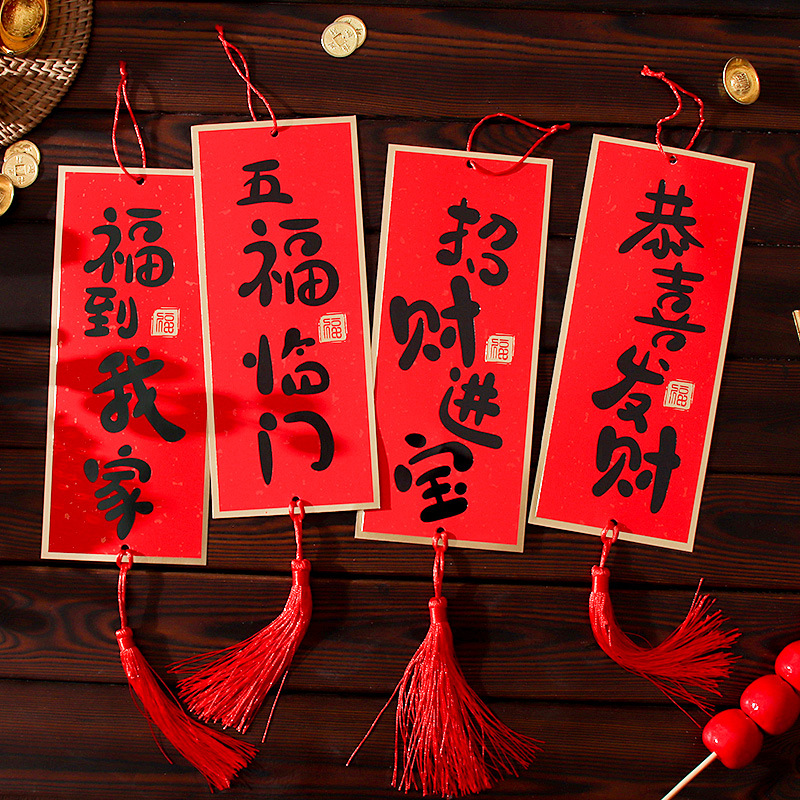 福到我家
福
五福临门
福
招财进宝
福
恭喜发财
福